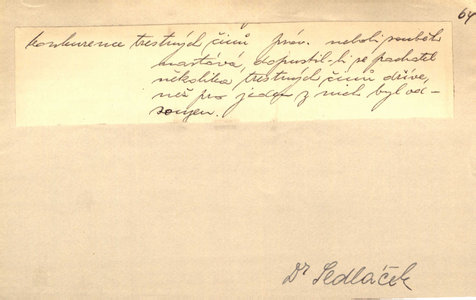 64
konkurence trestných činů práv. neboli souběh
nastává, dopustil-li se pachatel
několika trestných činů dříve,
než pro jeden z nich byl od-
souzen.
Dr Sedláček